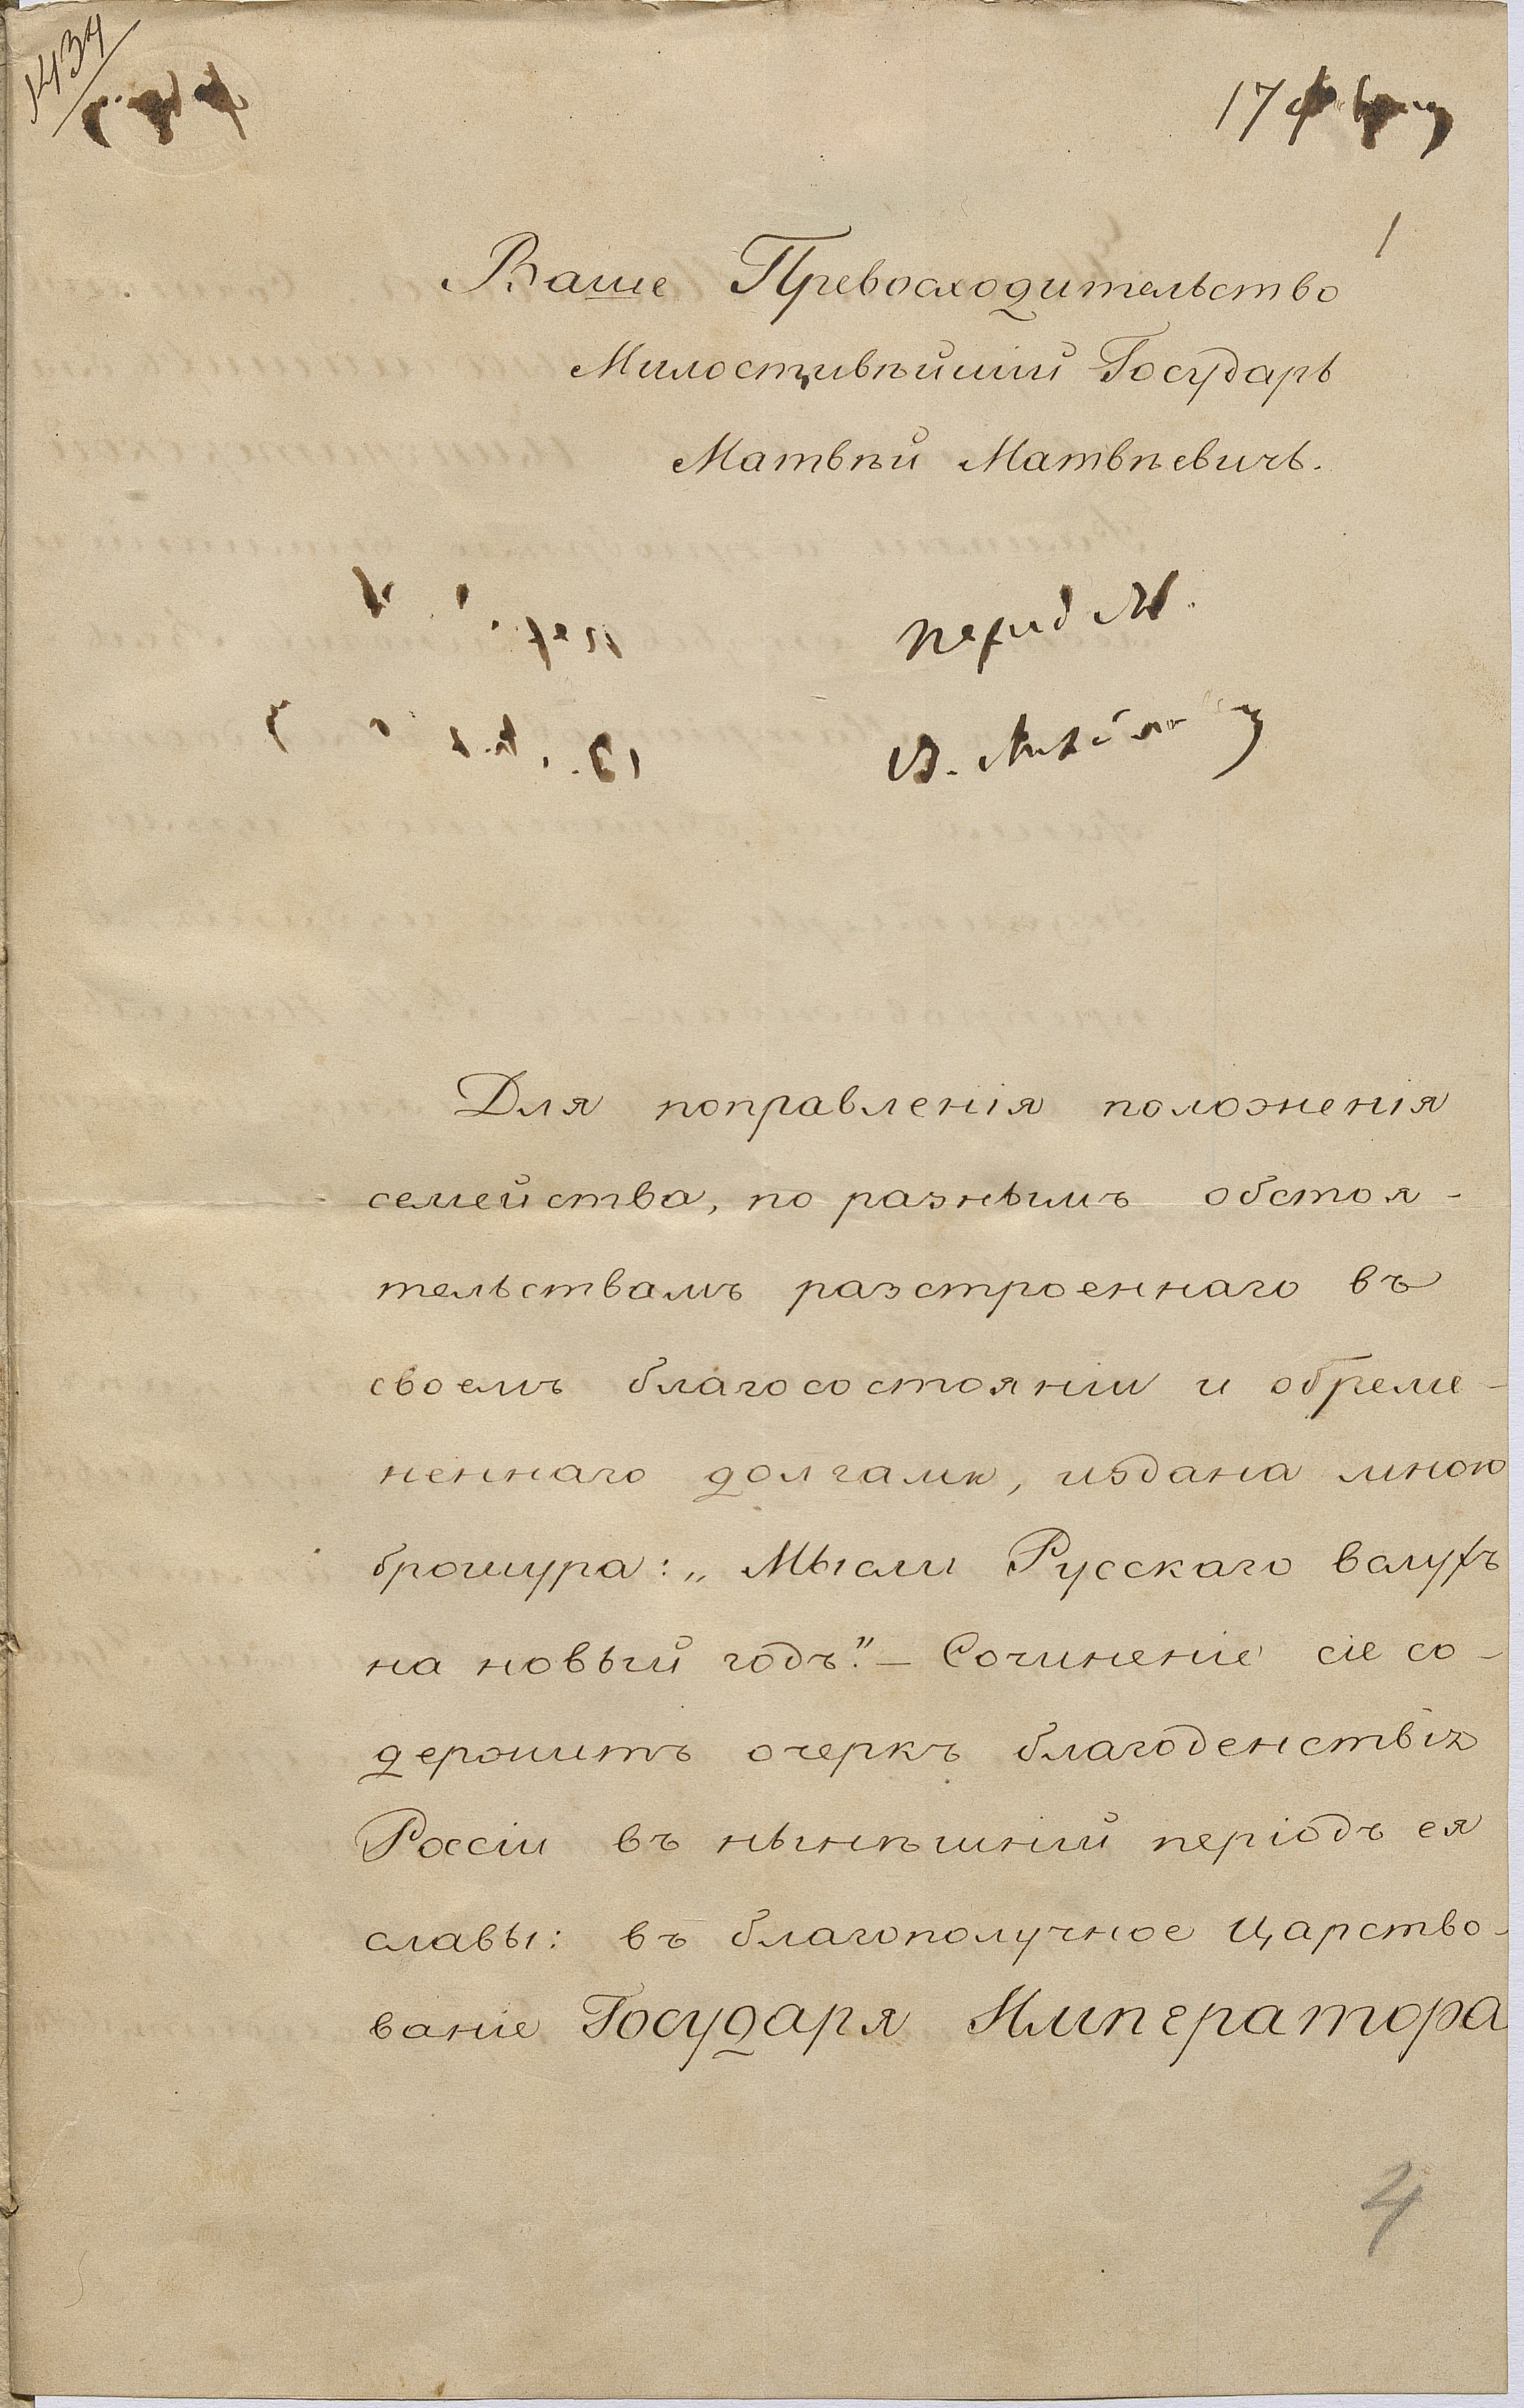 1434
17
1
Ваше Превосходительство
Милостивѣйшій Государь
Матвѣй Матвѣевичь.
Для поправленія положенія
семейства, по разнымъ обстоя-
тельствамъ разстроеннаго въ
своемъ благосостояніи и обреме-
неннаго долгами, издана мною
брошура: „Мысли Русскаго вслухъ
на новый годъ."— Сочиненіе сіе со-
держитъ очеркъ благоденствія
Россіи въ нынѣшній періодъ ея
славы: въ благополучное Царство-
ваніе Государя Императора
4